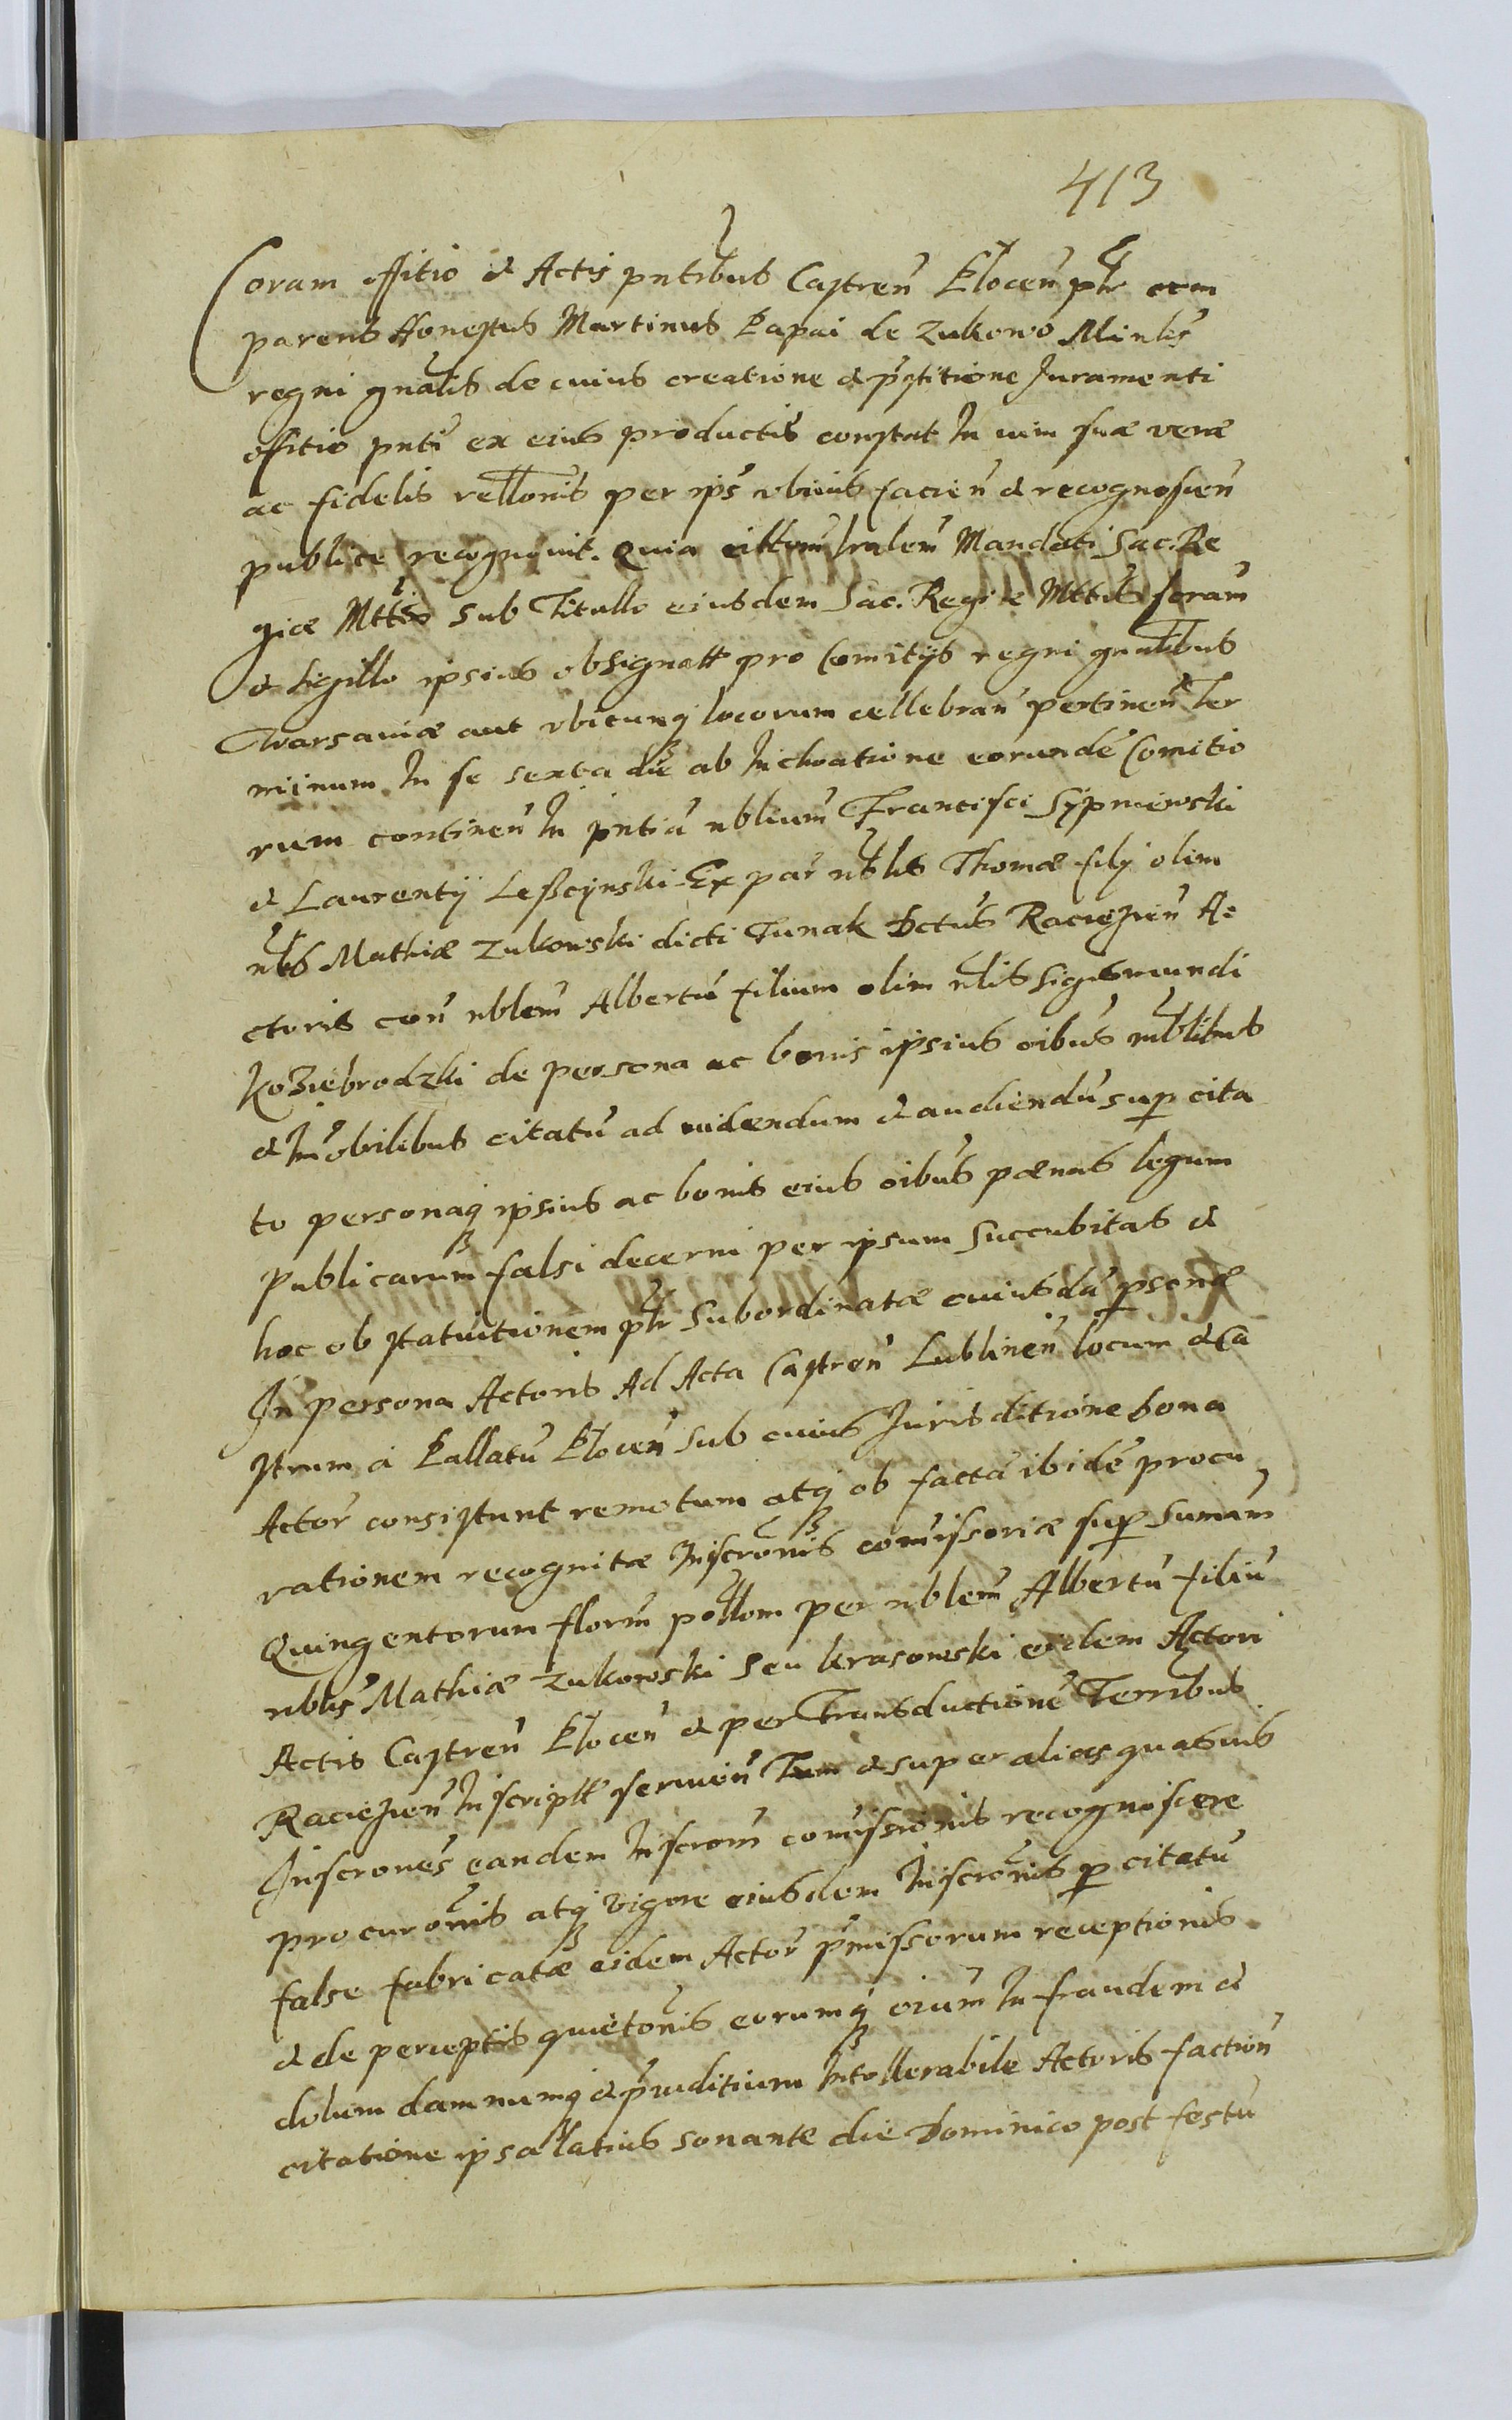 413
Coram offitio & Actis pntibus Castren Plocen plr com
parens Honestus Martinus Papai de Zukowo Minlis
regni gnalis de cuius creatione & pstitione Juramenti
offitio pnti ex eius productis constat In vim suæ veræ
ac fidelis rellonis per ips obiius facien & recognoscen
publice recognovit. Quia cittonem lralem Mandati Sac. Re
giæ Mttis sub Titullo eiusdem Sac. Regiæ Mttis
& Sigillo ipsius obsignatt pro Comitijs regni gnalibus
Warsaviæ aut vbicunq locorum cellebran pertinen Ter
minum In se sexta die ab Inchoatione eorunde Comitio
rum continen In pntia nblium Francisci Sypniewski
& Laurentij Lesscynski Ex par nblis Thomæ filij olim
nblis Mathiæ Zukowski dicti Tunak Dctus Raciezien A
ctoris con nblem Albertu filium olim nblis Sigismundi
Koziebrodzki de persona ac bonis ipsius oibus mblibus
& Imobilibus citatu ad videndum & audiendu sup cita
to personaq ipsius ac bonis eius oibus pænas legum
publicarum falsi decerni per ipsum succubitas &
hoc ob statuitionem plr subordinatæ cuiusda psonæ
In persona Actoris Ad Acta Castren Lublinen locum & Ca
strum a Pallatu Plocen sub cuius Jurisditione bona
Actor consistunt remotum atq ob facta ibide procu
rationem recognitæ Inscronis comissoriæ sup sumam
Quingentorum florm pollom per nblem Albertu filiu
nblis Mathiæ Zukowski seu Krasowski eidem Actori
Actis Castren Plocen & per Transductione Terribus
Raciezien Inscriptt servien Tum & super alias quasvis
Inscrones eandem Inscrom comissionis recognoscere
procuronis atq vigore eiusdem Inscronis p citatu
false fabricatæ eidem Actor pmissorum receptionis
& de perceptis quietonis eorumq oium In fraudem &
dolum damnumq & pruditium Intollerabile Actoris faction
citatione ipsa latius sonante die Dominico post festu